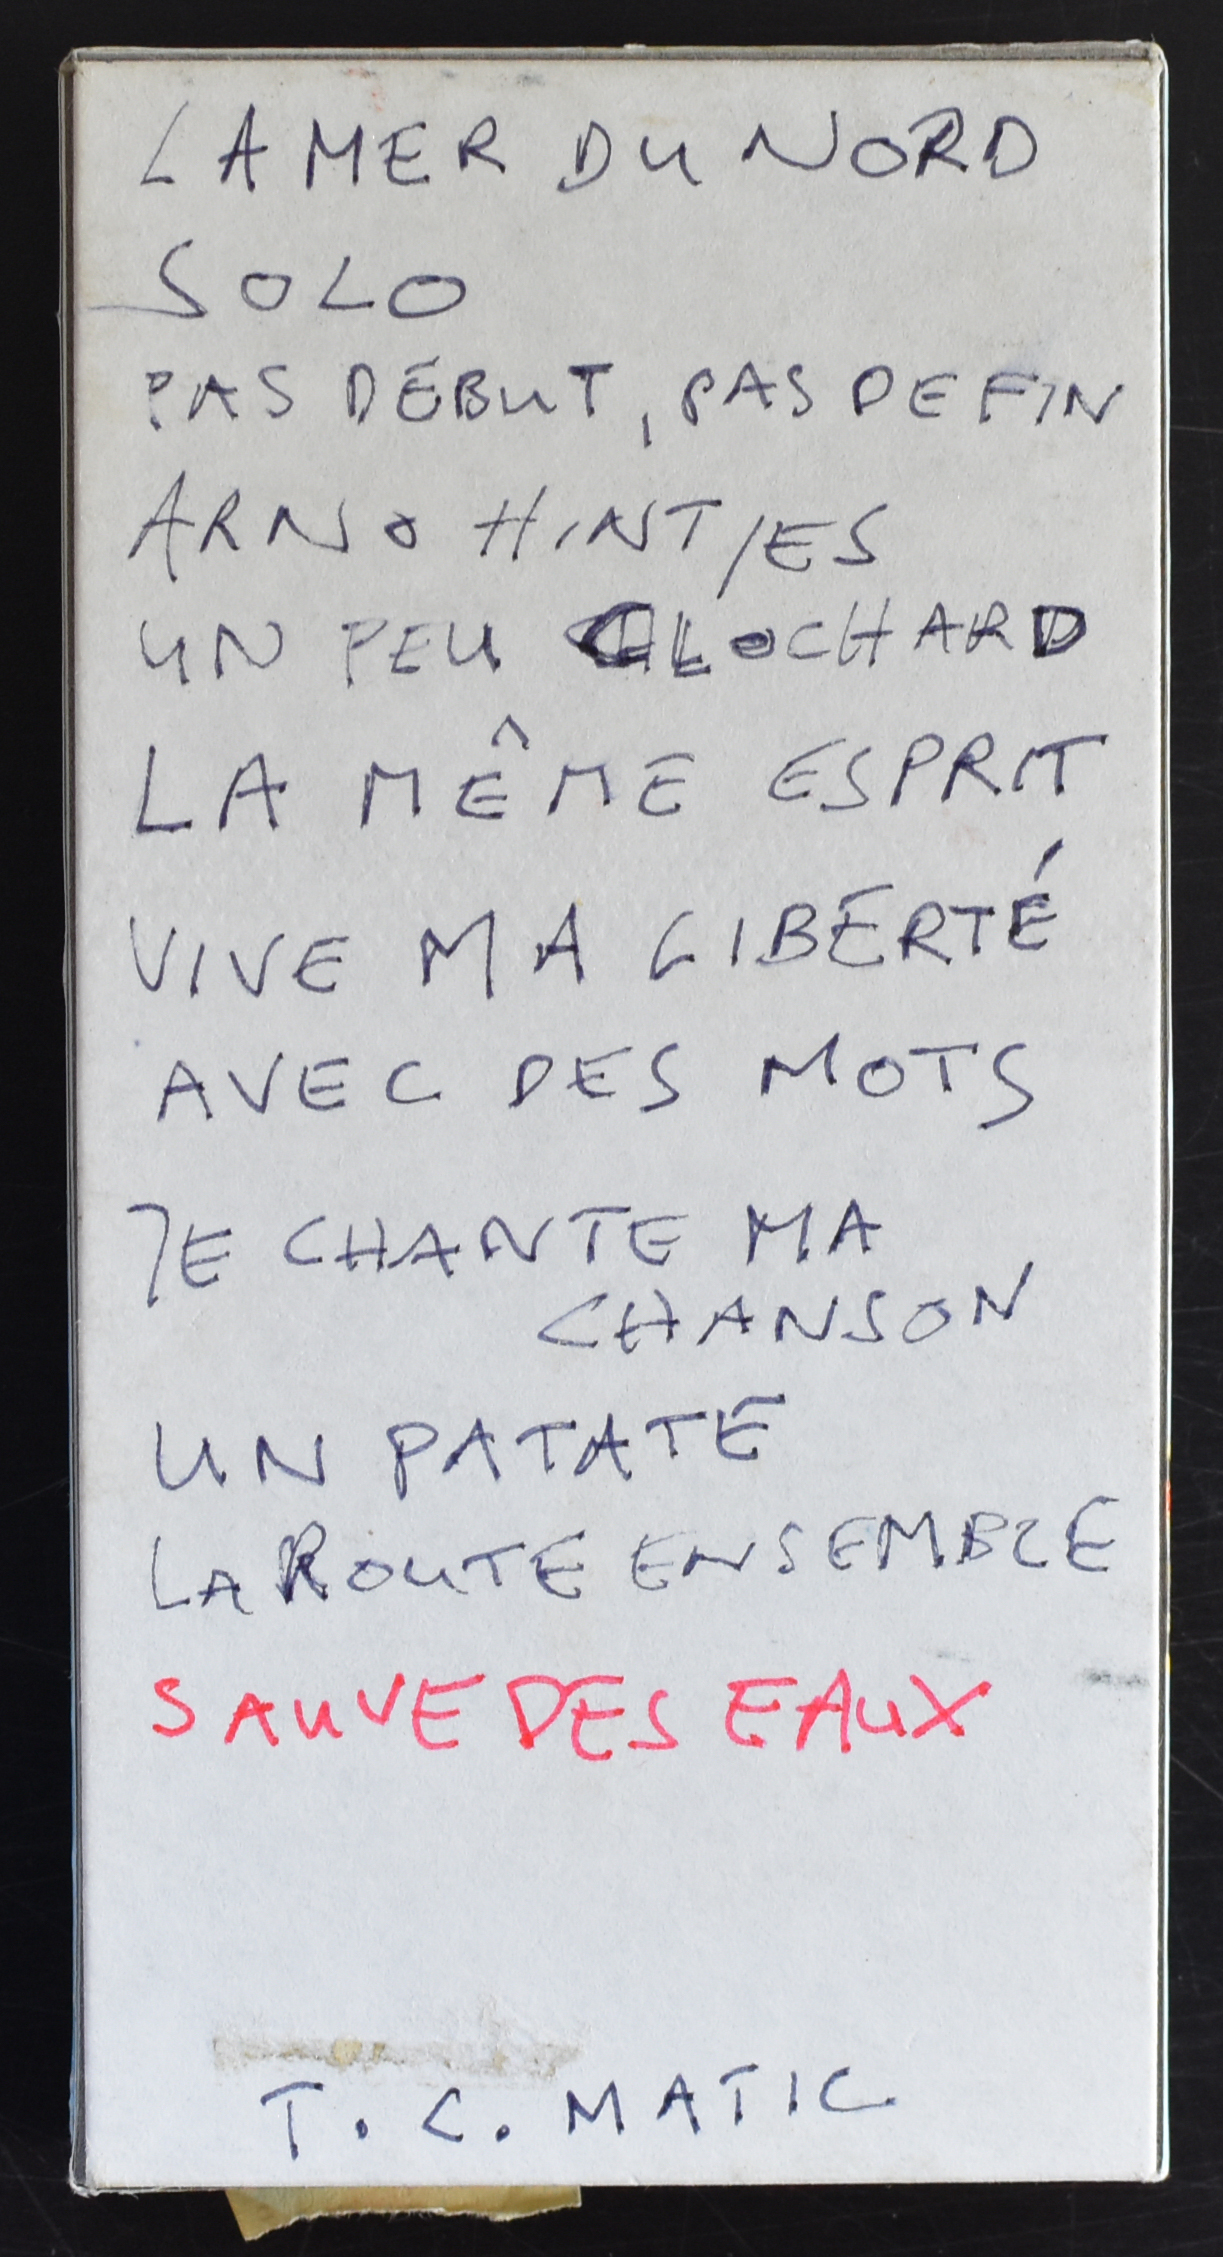 LA MER DU NORD
SOLO
PAS DÉBUT, PAS DE FIN
ARNO HINTJES
UN PEU CLOCHARD
LA MÊME ESPRIT
VIVE MA LIBERTÉ
AVEC DES MOTS
JE CHANTE MA
CHANSON
UN PATATE
LA ROUTE ENSEMBLE
SAUVE DES EAUX
T. C. MATIC